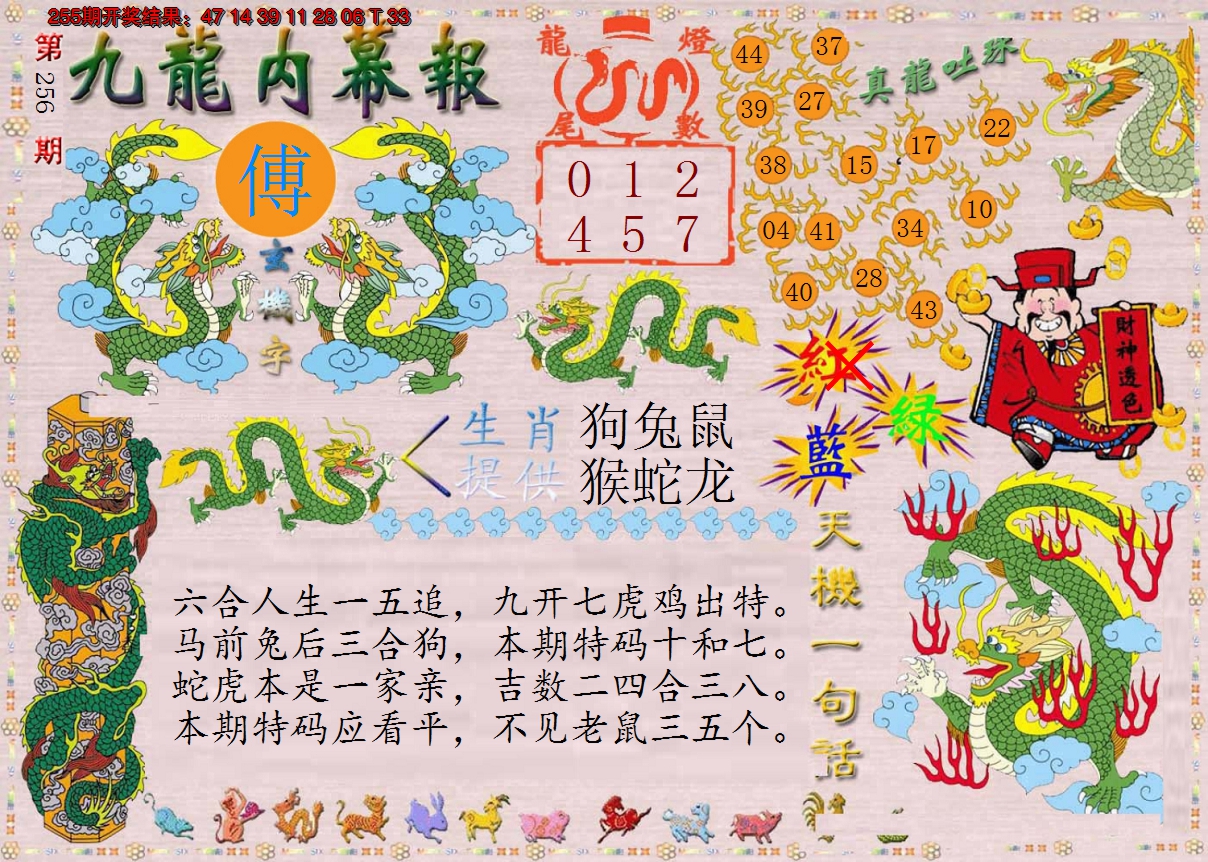 255期开奖结果：47 14 39 11 28 06 T 33
第256期
九龍内幕報
傅
玄機字
龍燈
尾數
0 1 2
4 5 7
真龍吐珠
44 37
39 27
22
17
38 15
10
04 41 34
28
40 43
財神透色
紅
綠
藍
生肖 狗兔鼠
提供 猴蛇龙
六合人生一五追，九开七虎鸡出特。
马前兔后三合狗，本期特码十和七。
蛇虎本是一家亲，吉数二四合三八。
本期特码应看平，不见老鼠三五个。
天機一句話